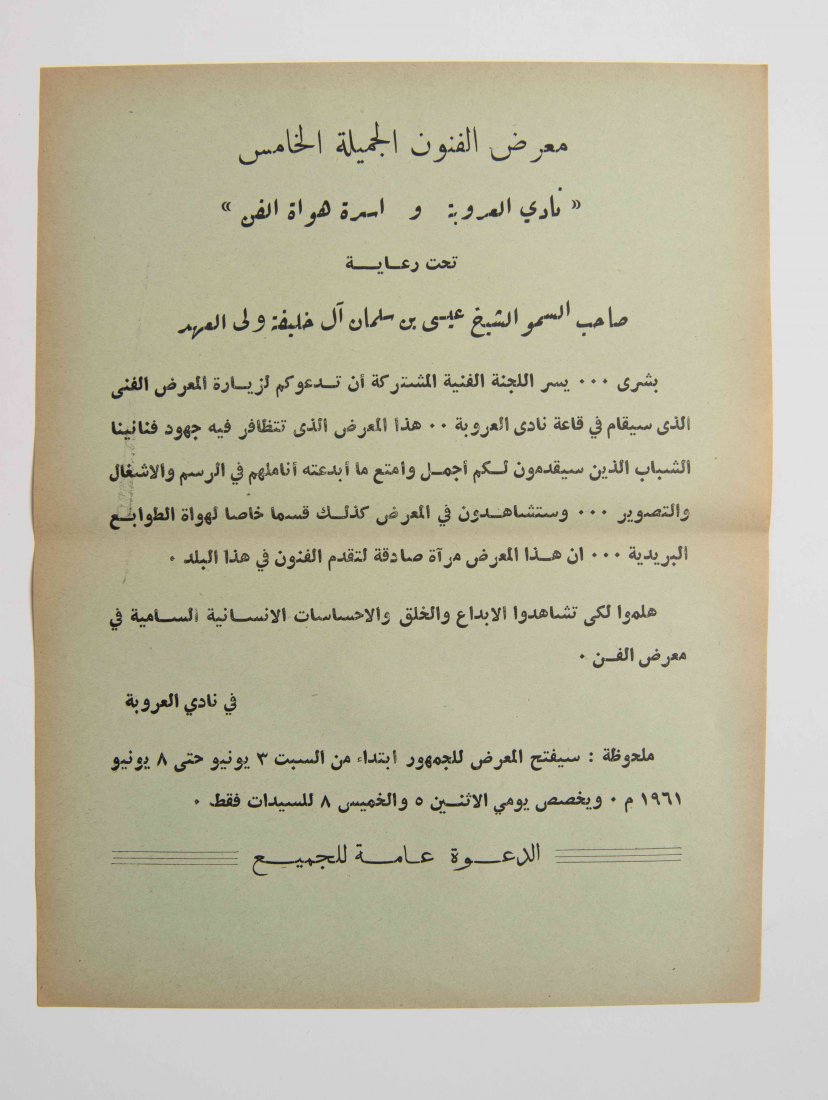 معرض الفنون الجميلة الخامس
« نادي العروبة و اسرة هواة الفن »
تحت رعايـــة
صاحب السمو الشيخ عيسى بن سلمان آل خليفة ولى العهد
بشرى ٠٠٠ يسر اللجنة الفنية المشتركة أن تـدعوكم لزيـارة المعرض الفنى
الذى سيقام في قاعة نادى العروبة ٠٠ هذا المعرض الذى تتظافر فيه جهود فنانينا
الشباب الذين سيقدمون لـكم أجمـل وامتع ما أبدعته أناملهم في الرسم والاشغال
والتصوير ٠٠٠ وستشاهـدون في المعرض كذلـك قسما خاصا لهواة الطوابـع
البريدية ٠٠٠ ان هـذا المعرض مرآة صادقة لتقدم الفنون في هذا البلد ٠
هلموا لكى تشاهدوا الابداع والخلق والاحساسات الانسـانية السـامية في
معرض الفـن ٠
في نادي العروبة
ملحوظة : سيفتح المعرض للجمهور ابتداء من السبت ٣ يونيو حتى ٨ يونيو
١٩٦١ م ٠ ويخصص يومي الاثنين ٥ والخميس ٨ للسيدات فقط ٠
الدعــوة عـامـة للجميـع